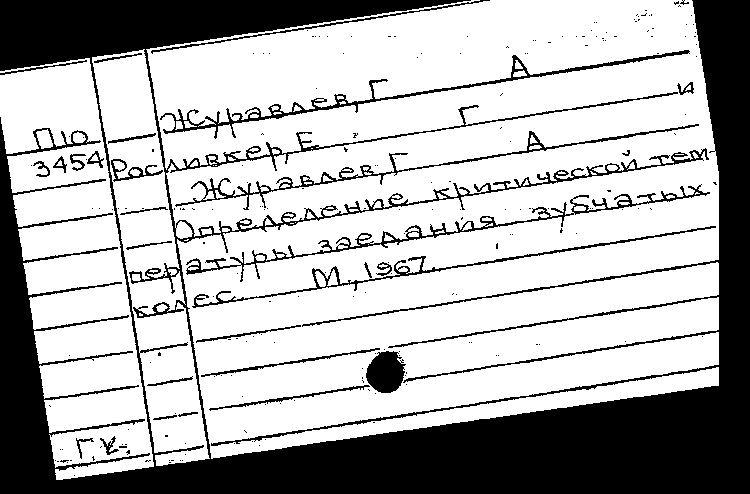 Журавлев, Г А
П10
3454 Росливкер, Е Г и
Журавлев, Г А
Определение критической тем-
пературы заедания зубчатых
колес. М., 1967.
Г.К.